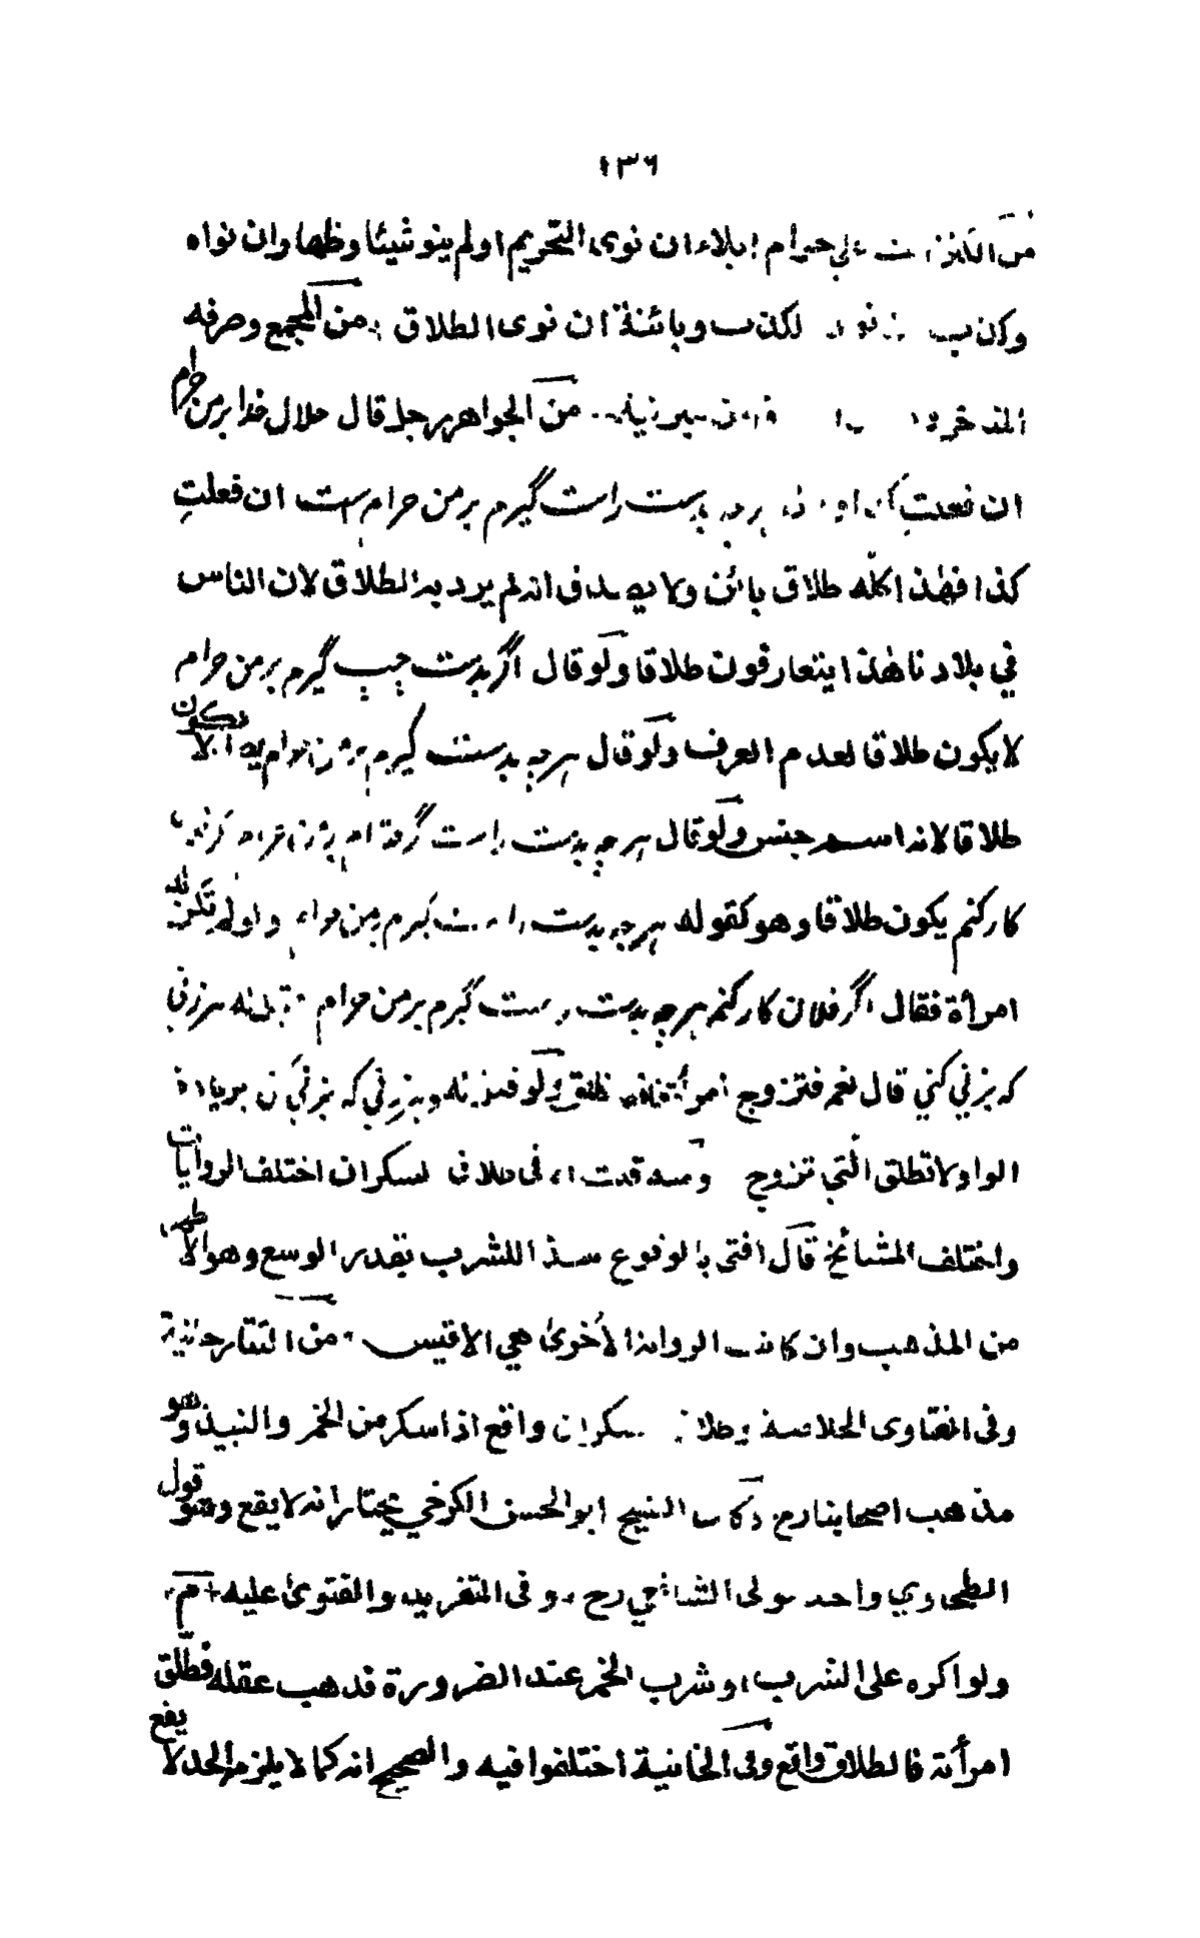 ١٣٦
من الكنز انت علي حرام ايلاء ان نوى التحريم او لم ينو شيئا وظهار ان نواه
وكذب نوى الكذب وبائنة ان نوى الطلاق من المجمع وصرفه
من الجواهر رجل قال حلال خدا بر من حرام
ان فعلت كذا او راست گيرم بر من حرام ست ان فعلتِ
كذا فهٰذا كلّه طلاق بائن ولا يصدق انه لم يرد به الطلاق لان الناس
في بلادنا هٰذا يتعارفون طلاقا ولو قال اگر بدست چپ گيرم بر من حرام
لا يكون طلاقا لعدم العرف ولو قال هرچه بدست گيرم بر من حرام لا يكون
طلاقا لانه اسم جنس ولو قال هرچه بدست راست گرفته ام بر من حرام
كار كنم يكون طلاقا وهو كقوله هرچه بدست راست گيرم بر من حرام ولو لم تكن له
امرأة فقال اگر فلان كار كنم هرچه بدست راست گيرم بر من حرام هرزني
كه بزني كني قال نعم فتزوج امرأة تطلق ولو قيل له وبزني كه بزني كني بزيادة
الواو لا تطلق الّتي تزوج في طلاق السكران اختلف الروايات
واختلف المشائخ قال افتى بالوقوع سدا للشرب بقدر الوسع وهو الاظهر
من المذهب وان كانت الرواية الأخرىٰ هي الاقيس من التتارخانية
وفى الفتاوى الخلاصة وطلاق السكران واقع اذا سكر من الخمر والنبيذ وهو
مذهب اصحابنا رح وكان الشيخ ابو الحسن الكرخي يختار انه لا يقع وهو قول
الطحاوي واحد قولى الشافعي رح وفى التفريد والفتوىٰ عليه م
ولو اكره على الشرب او شرب الخمر عند الضرورة فذهب عقله فطلّق
امرأته فالطلاق واقع وفى الخانية اختلفوا فيه والصحيح انه كما لا يلزم الحد لا يقع